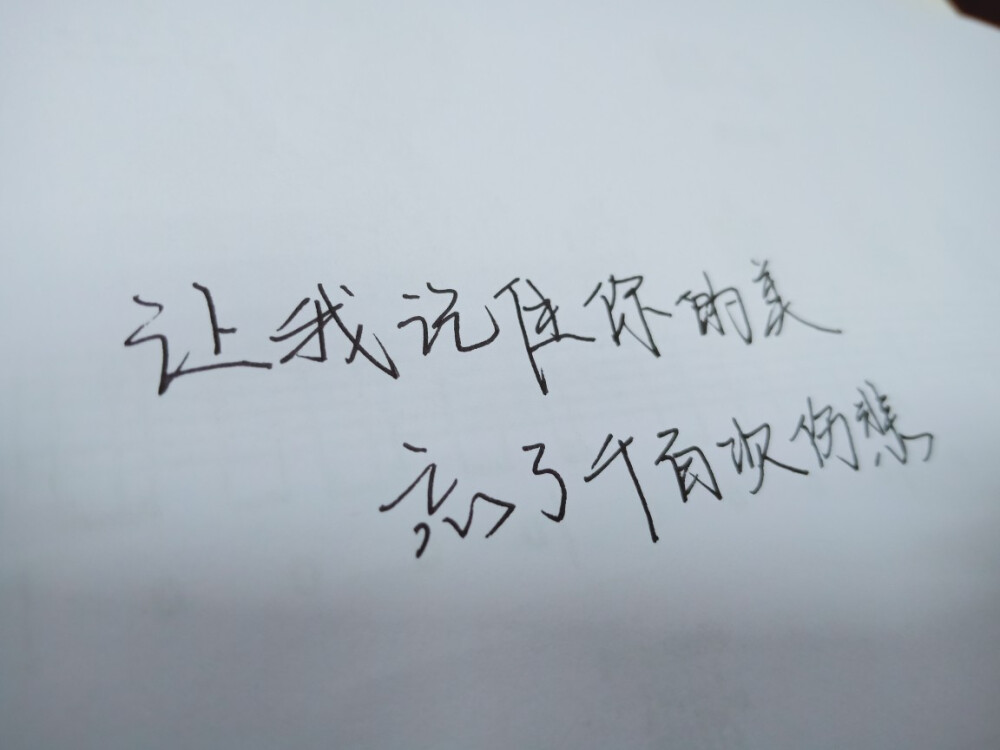 让我记住你的美
忘了千百次伤悲